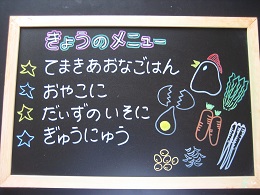 きょうのメニュー
てまきあおなごはん
おやこに
だいずのいそに
ぎゅうにゅう